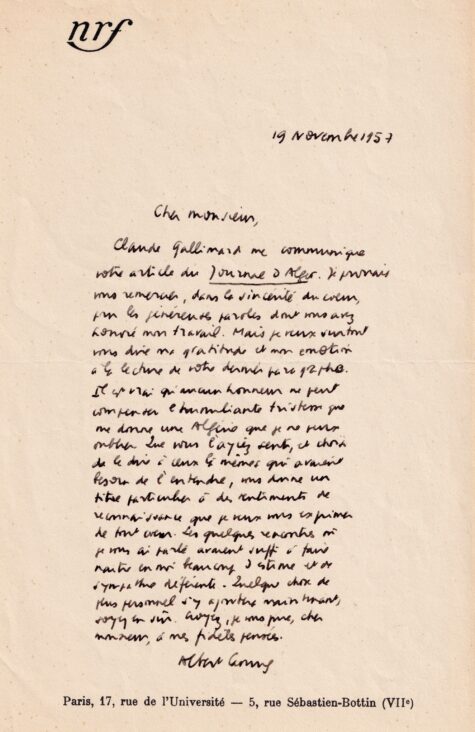 nrf
19 Novembre 1957
Cher monsieur,
Claude Gallimard me communique
votre article du Journal d'Alger. Je pourrais
vous remercier, dans la sincérité du cœur,
pour les généreuses paroles dont vous avez
honoré mon travail. Mais je veux surtout
vous dire ma gratitude et mon émotion
à la lecture de votre dernier paragraphe.
Il est vrai qu'aucun honneur ne peut
compenser l'humiliante tristesse que
me donne une Algérie que je ne peux
oublier. Que vous l'ayez senti, et choisi
de le dire à ceux là mêmes qui avaient
besoin de l'entendre, vous donne un
titre particulier à des sentiments de
reconnaissance que je veux vous exprimer
de tout cœur. Les quelques rencontres où
je vous ai parlé avaient suffi à faire
naître en moi beaucoup d'estime et de
sympathie déférente. Quelque chose de
plus personnel s'y ajoutera maintenant,
soyez en sûr. Croyez, je vous prie, cher
monsieur, à mes fidèles pensées.
Albert Camus
Paris, 17, rue de l'Université — 5, rue Sébastien-Bottin (VIIe)